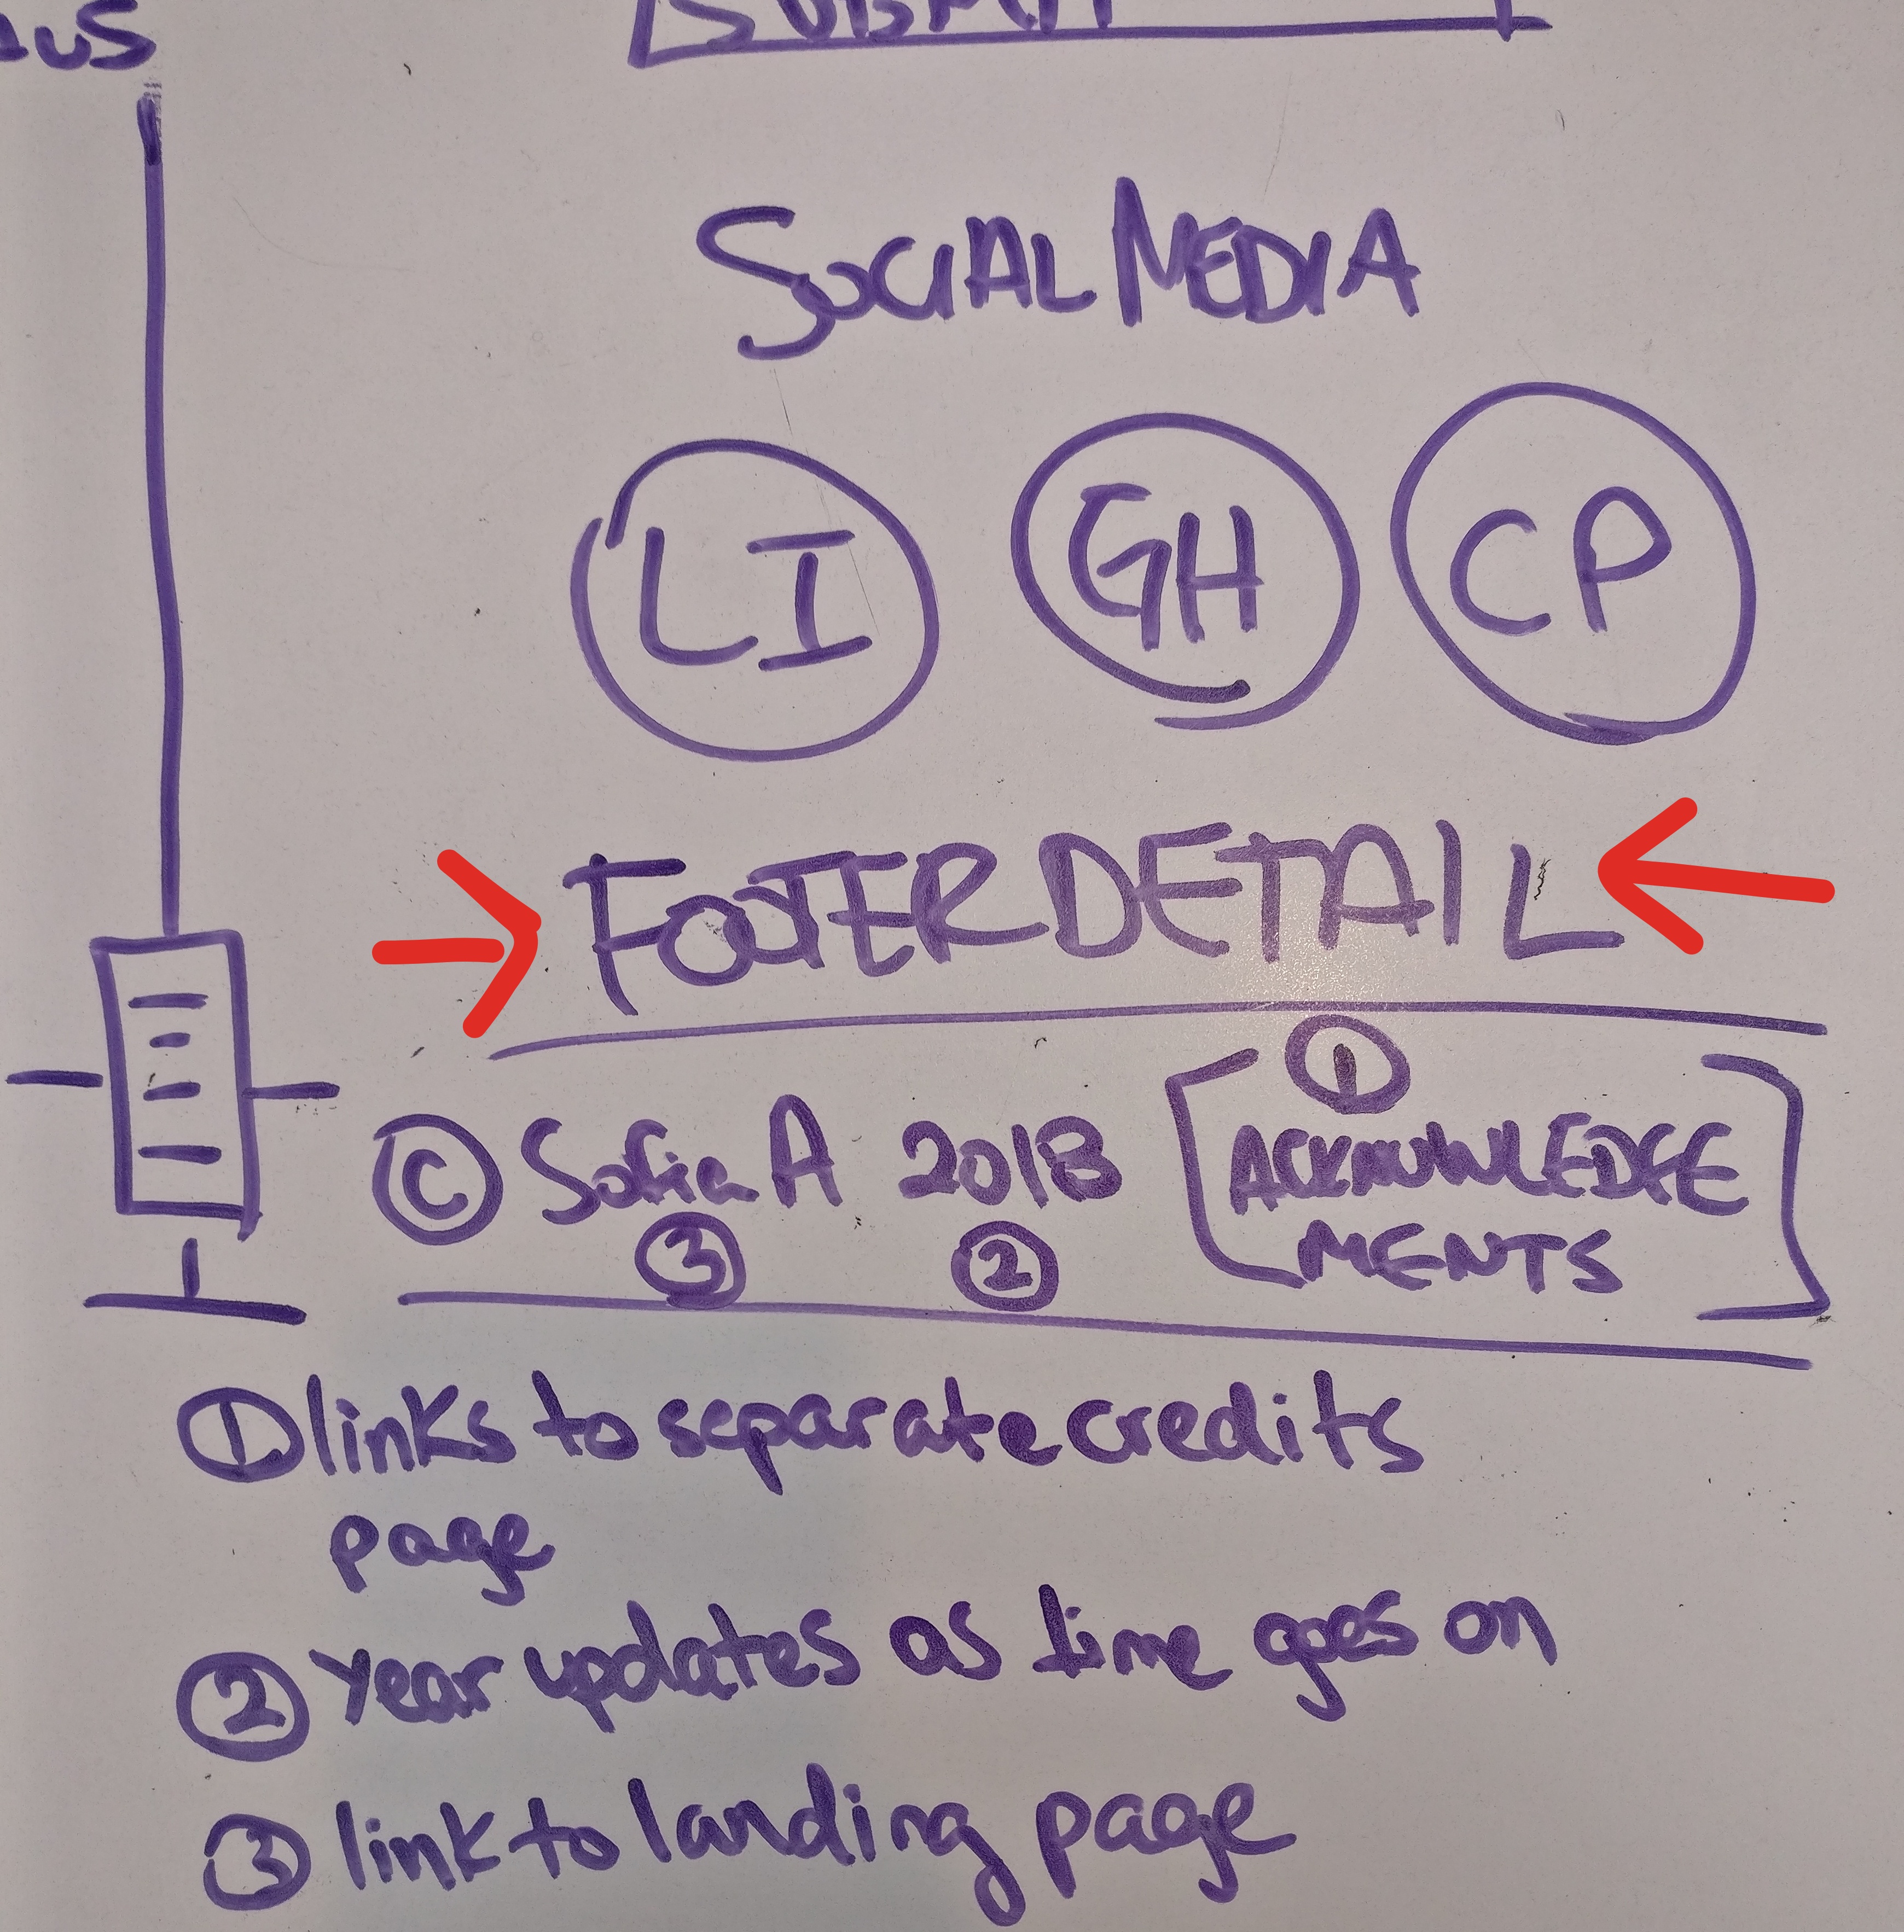 SUBMIT
SOCIAL MEDIA
LI GH CP
FOOTER DETAIL
1
© Sofia A 2018 [ACKNOWLEDGE
MENTS]
3 2
1 links to separate credits
page
2 Year updates as time goes on
3 link to landing page